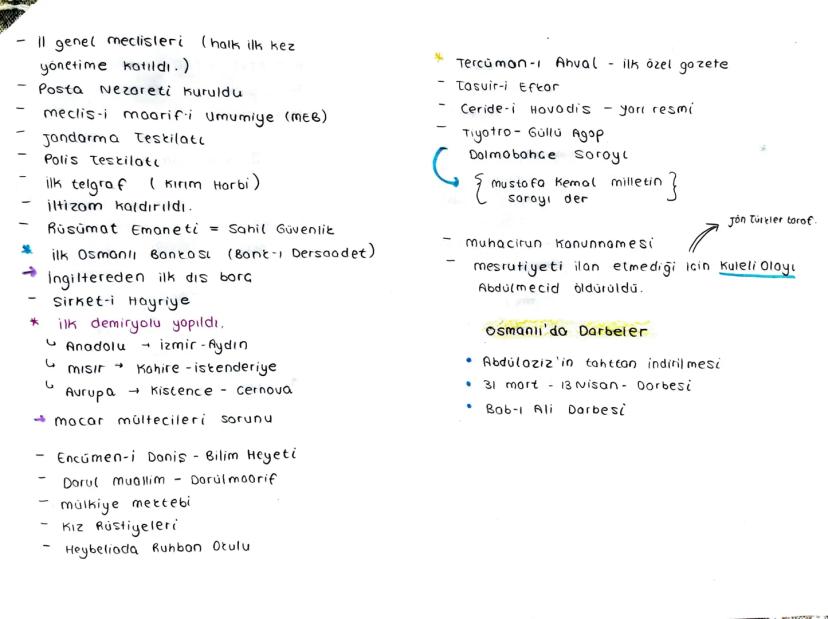 - İl genel meclisleri (halk ilk kez
yönetime katıldı.)
- Posta Nezareti Kuruldu
- meclis-i maarif-i Umumiye (MEB)
- Jandarma Teskilatı
- Polis Teskilatı
- ilk telgraf ( Kırım Harbi)
- iltizam kaldırıldı.
- Rüsümat Emaneti = Sahil Güvenlik
* ilk Osmanlı Bankası (Bank-ı Dersaadet)
→ İngiltereden ilk dıs borc
- Sirket-i Hayriye
* ilk demiryolu yapıldı.
↳ Anadolu → izmir-Aydın
↳ mısır → Kahire-istenderiye
↳ Avrupa → Kistence - Cernova
→ macar mültecileri sorunu
- Encümen-i Danis - Bilim Heyeti
- Darul muallim - Darülmaarif
- mülkiye mektebi
- Kız Rüstiyeleri
- Heybeliada Ruhban Okulu
* Tercüman-ı Ahval - ilk özel gazete
- Tasvir-i Efkar
- Ceride-i Havadis - yarı resmi
- Tiyatro- Güllü Agop
Dolmabahce Sarayı
{ mustafa Kemal milletin }
sarayı der
Jön Türkler taraf.
- muhacirun Kanunnamesi
- mesrutiyeti ilan etmediği icin Kuleli Olayı
Abdülmecid öldürüldü.
Osmanlı'da Darbeler
• Abdülaziz'in tahttan indirilmesi
• 31 mart - 13 Nisan - Darbesi
• Bab-ı Ali Darbesi